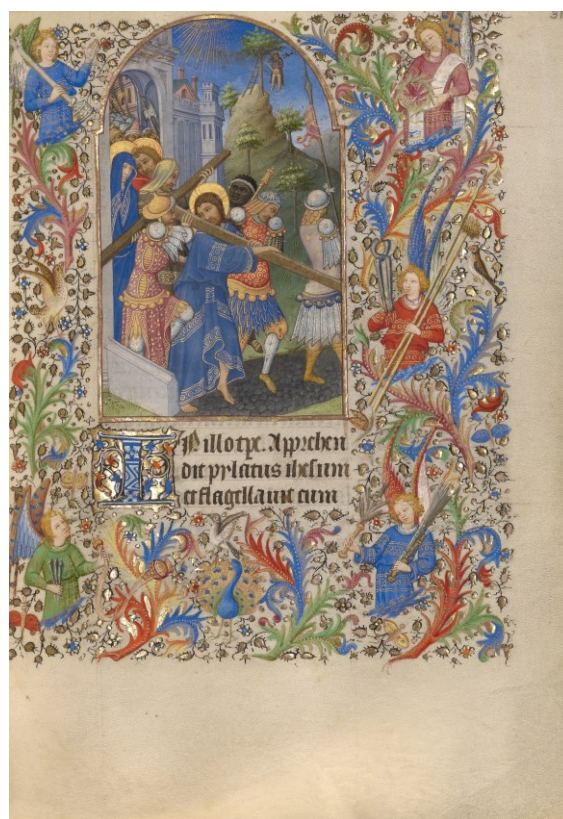 IN illo tpe. Apprehen
dit pylatus ihesum
et flagellauit eum